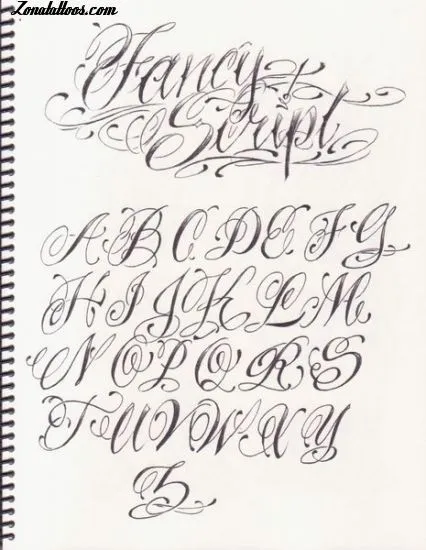 Zonatattoos.com
Fancy
Script
A B C D E F G
H I J K L M
N O P Q R S
T U V W X Y
Z